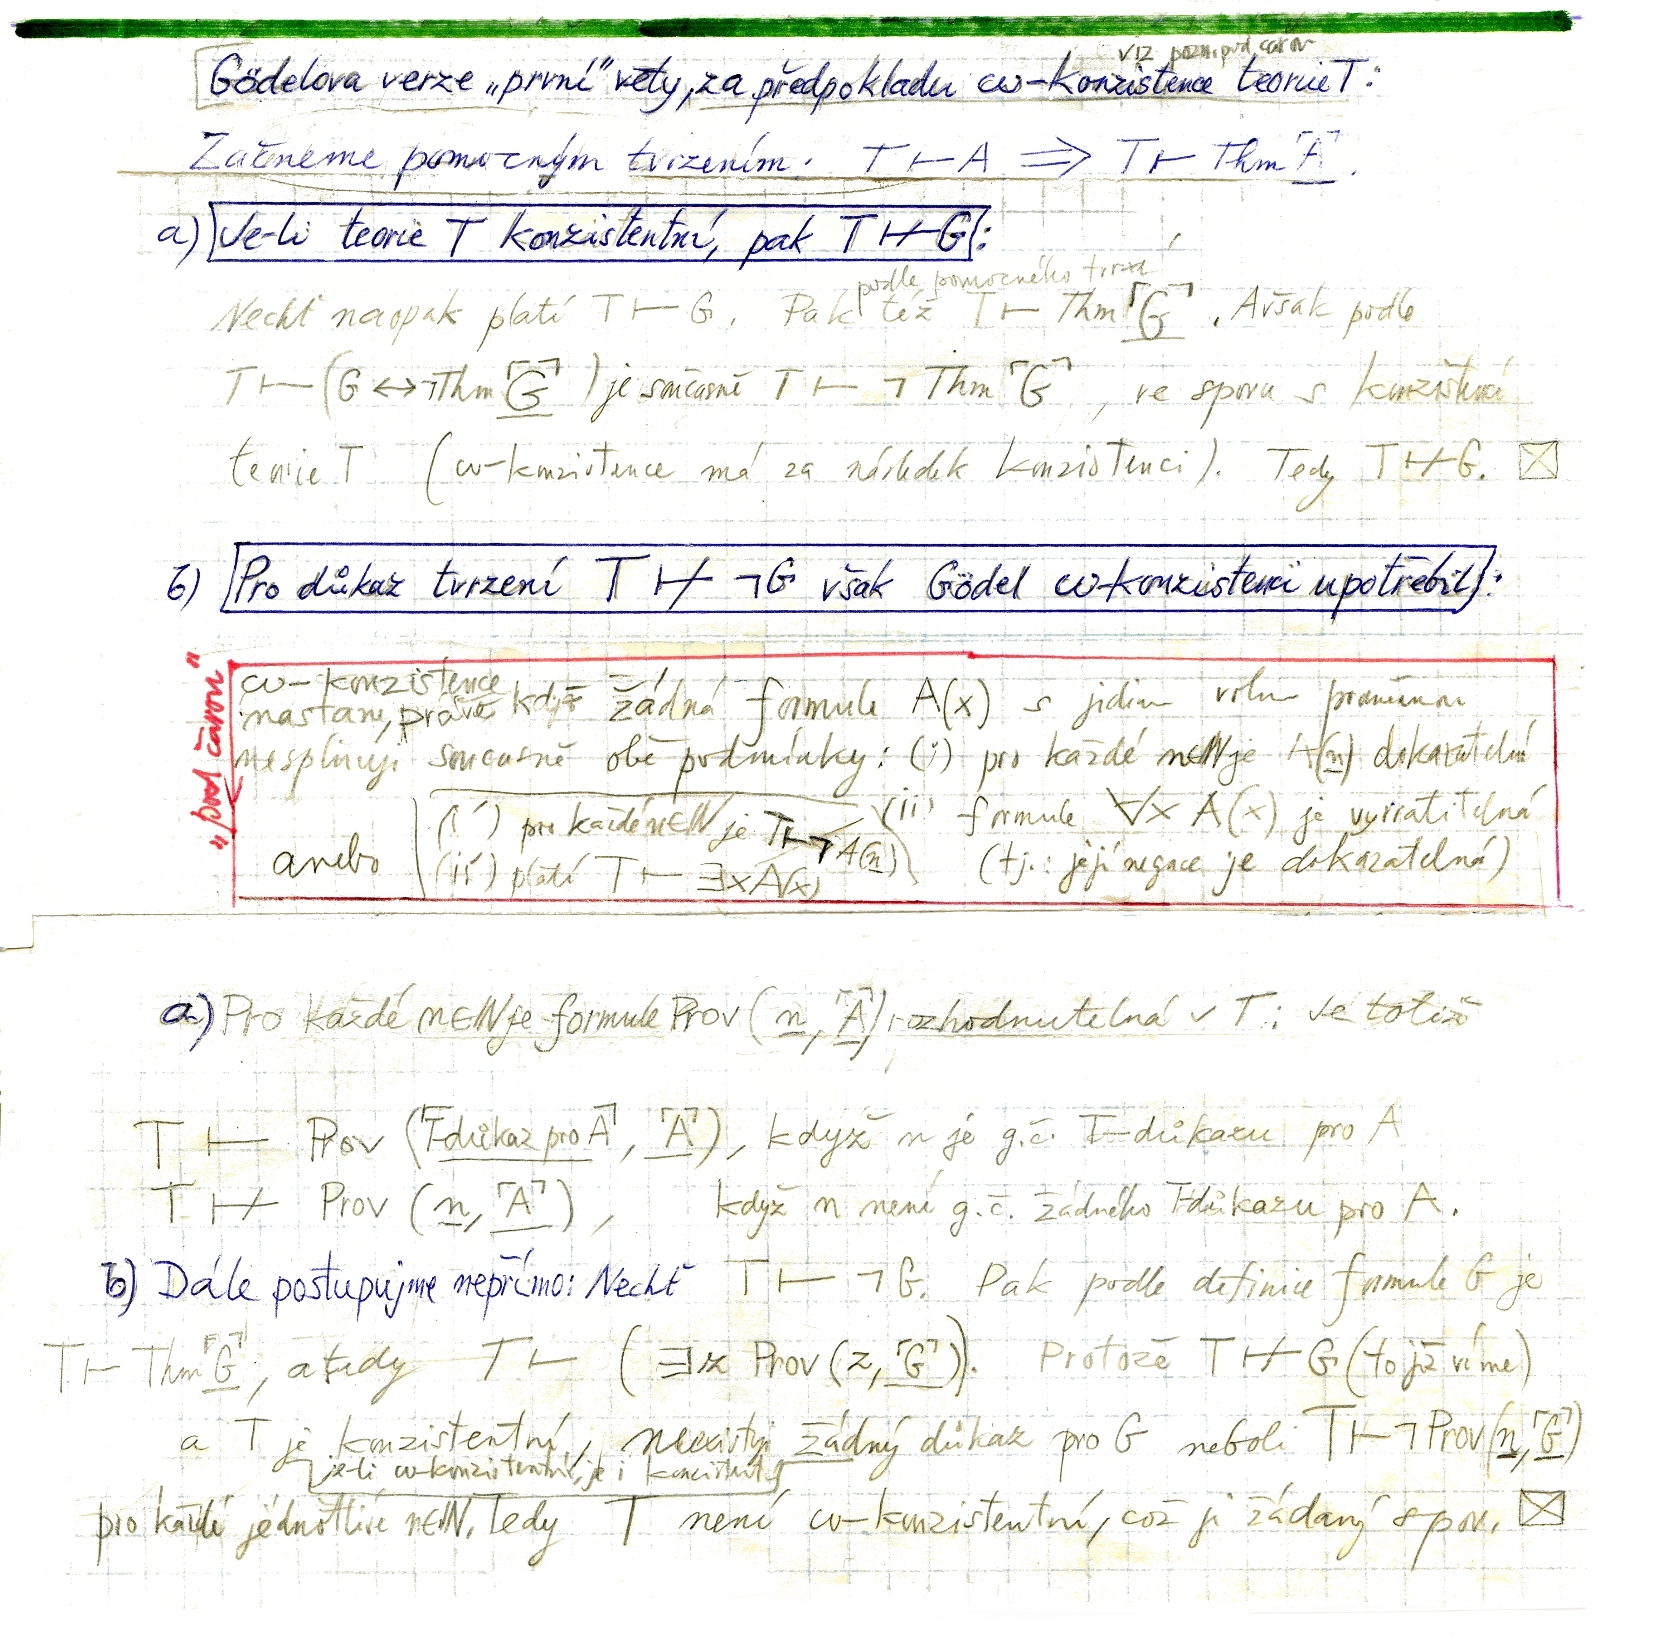 viz pozn. pod čarou
Gödelova verze „první" věty, za předpokladu ω-konzistence teorie T:
Začneme pomocným tvrzením: T ⊢ A ⇒ T ⊢ Thm ⌜A⌝.
a) Je-li teorie T konzistentní, pak T ⊬ G:
podle pomocného tvrzé
Nechť naopak platí T ⊢ G. Pak též T ⊢ Thm ⌜G⌝. Avšak podle
T ⊢ (G ↔ ¬Thm ⌜G⌝) je současně T ⊢ ¬ Thm ⌜G⌝, ve sporu s konzistencí
teorie T (ω-konzistence má za následek konzistenci). Tedy T ⊬ G. ☒
b) Pro důkaz tvrzení T ⊬ ¬G však Gödel ω-konzistenci upotřebil:
„pod čarou"
ω-konzistence
nastane, právě když žádná formule A(x) s jedinou volnou proměnnou
nesplňuje současně obě podmínky: (i) pro každé n∈N je A(n) dokazatelná
(i´) pro každé n∈N je T ⊢ ¬A(n) (ii) formule ∀x A(x) je vyvratitelná
anebo (ii´) platí T ⊢ ∃x A(x) (tj.: její negace je dokazatelná)
a) Pro každé n∈N je formule Prov (n, ⌜A⌝) rozhodnutelná v T: Je totiž
T ⊢ Prov (⌜T-důkaz pro A⌝, ⌜A⌝), když n je g.č. T-důkazu pro A
T ⊬ Prov (n, ⌜A⌝), když n není g.č. žádného T-důkazu pro A.
b) Dále postupujme nepřímo: Nechť T ⊢ ¬G. Pak podle definice formule G je
T ⊢ Thm ⌜G⌝, a tedy T ⊢ (∃z Prov (z, ⌜G⌝)). Protože T ⊬ G (to již víme)
a T je konzistentní, neexistuje žádný důkaz pro G neboli T ⊢ ¬Prov(n, ⌜G⌝)
je-li ω-konzistentní, je i konzistentní
pro každé jednotlivé n∈N. Tedy T není ω-konzistentní, což je žádaný spor. ☒